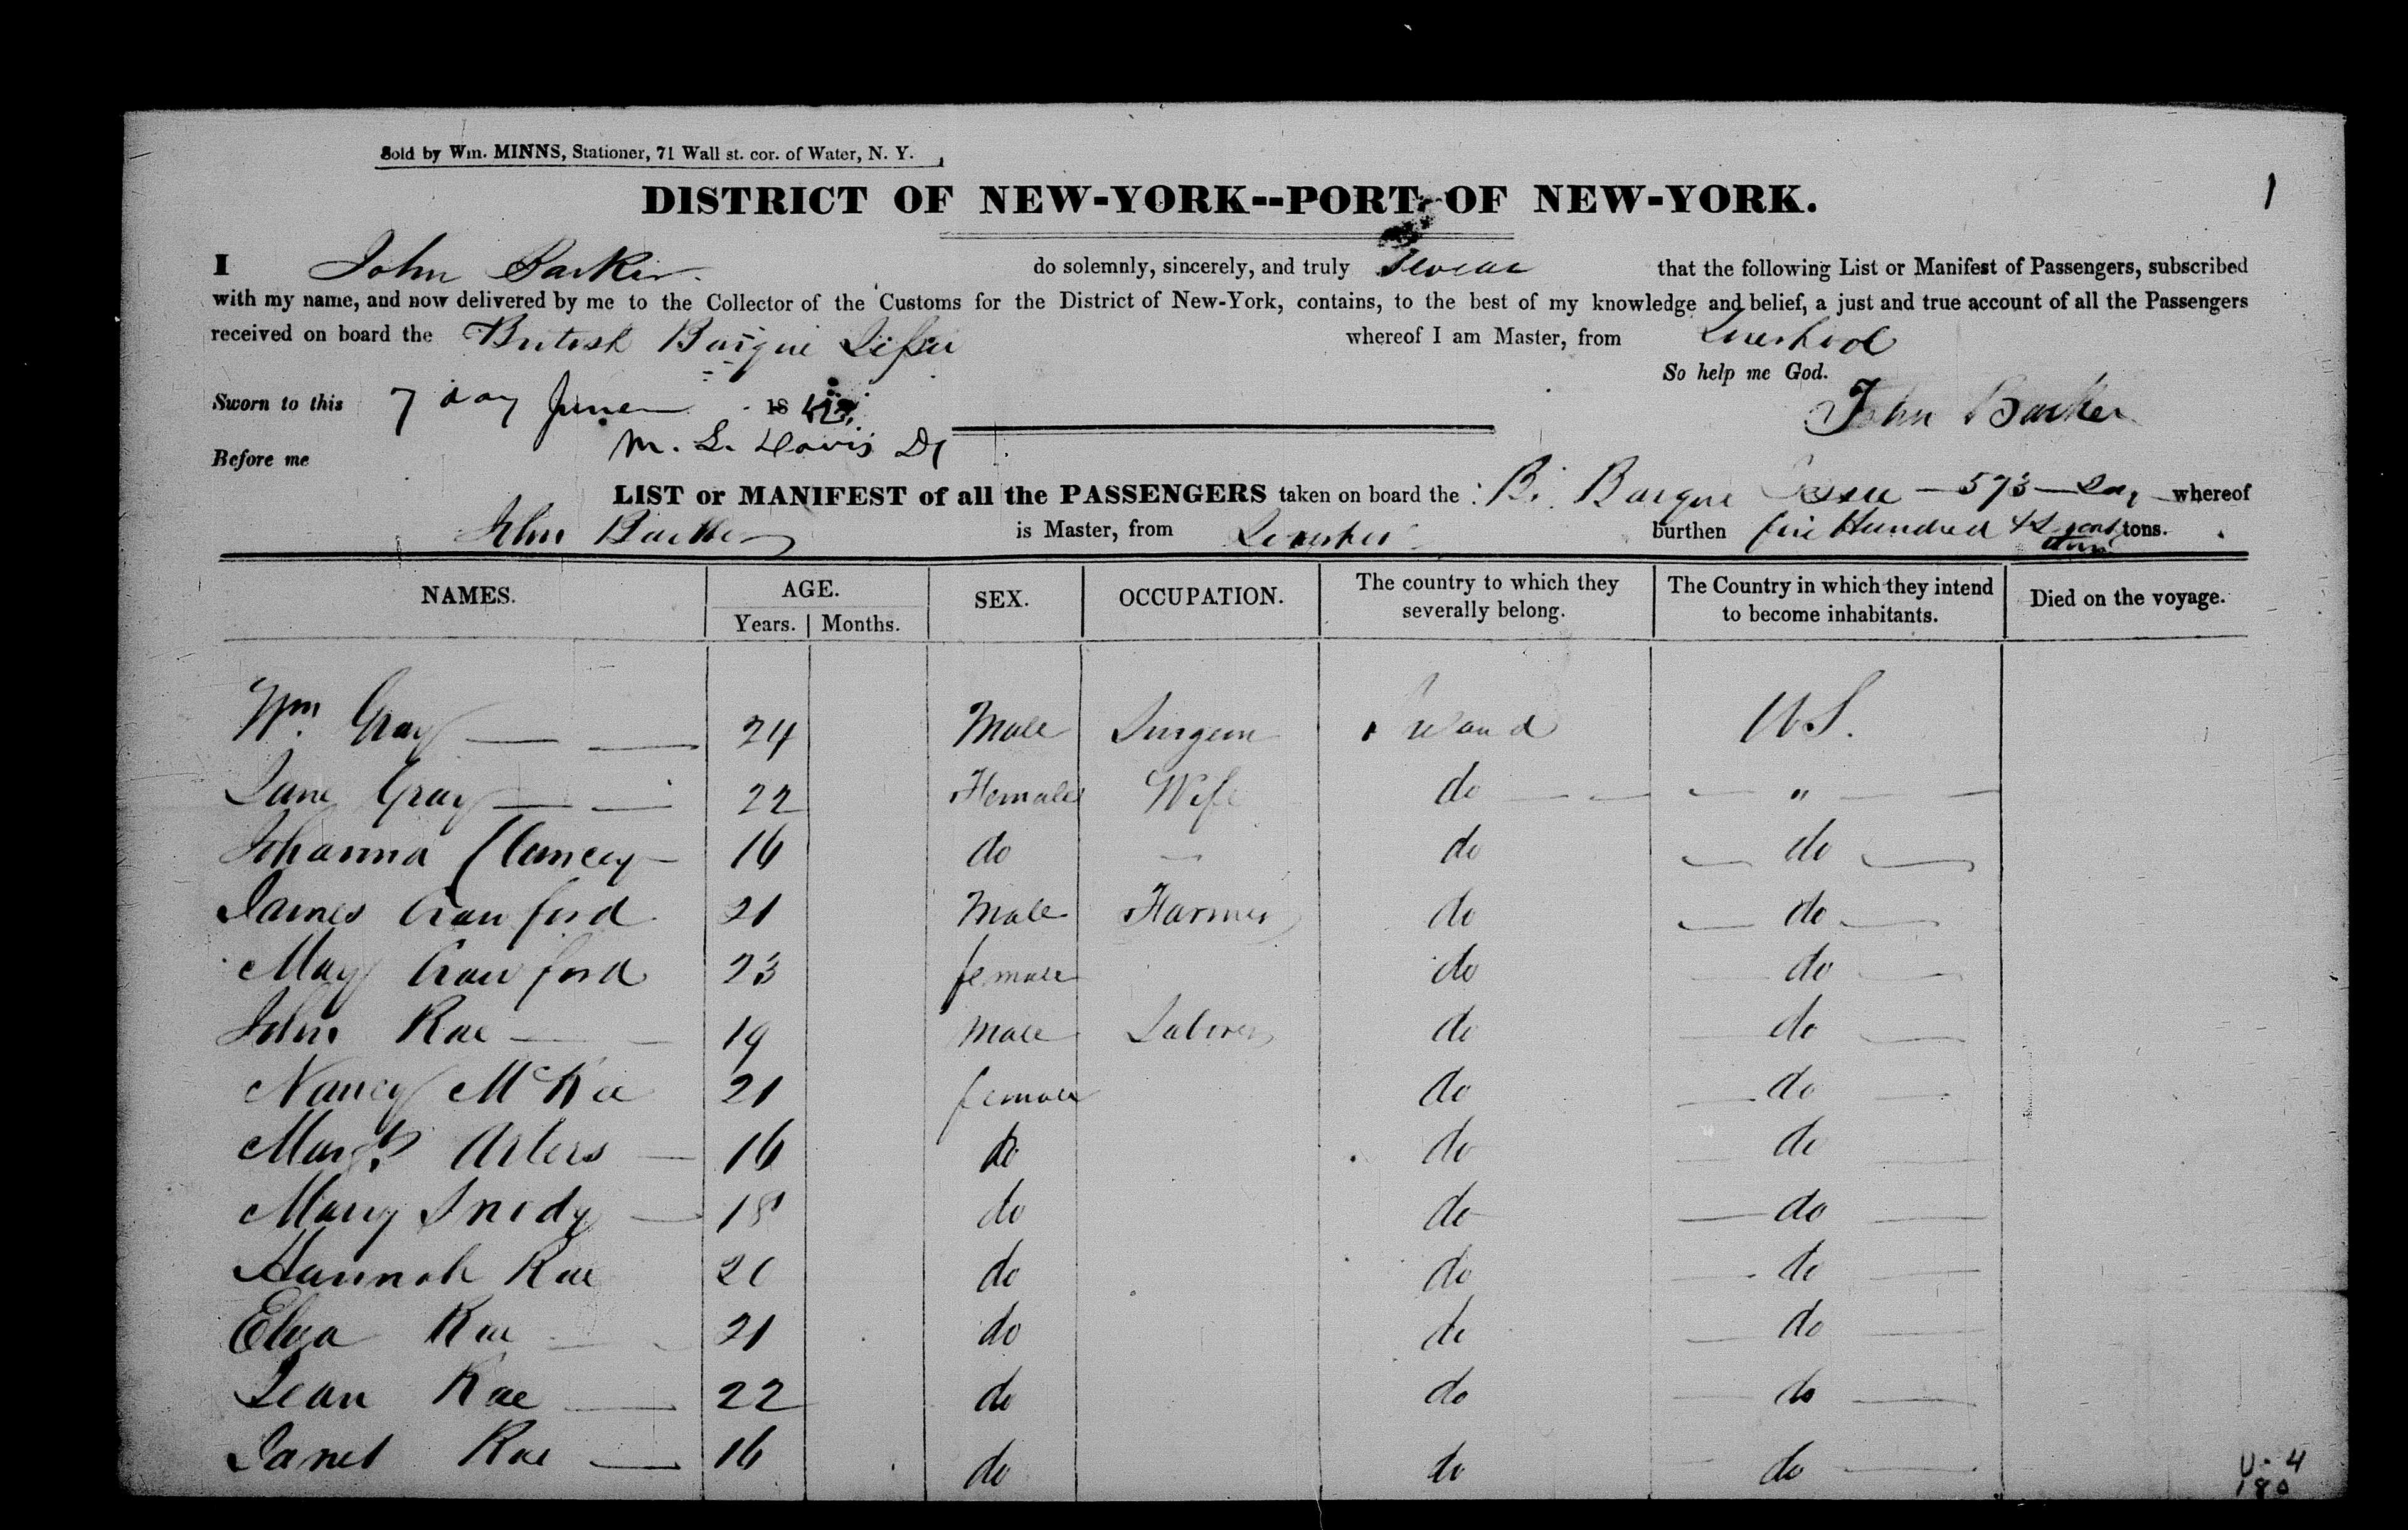 Sold by Wm. MINNS, Stationer, 71 Wall st. cor. of Water, N. Y.
1
DISTRICT OF NEW-YORK--PORT OF NEW-YORK.
I John Barker do solemnly, sincerely, and truly Swear that the following List or Manifest of Passengers, subscribed
with my name, and now delivered by me to the Collector of the Customs for the District of New-York, contains, to the best of my knowledge and belief, a just and true account of all the Passengers
received on board the British Barque whereof I am Master, from Liverpool
So help me God.
Sworn to this 7 day June 18 John Barker
Before me M. L. Davis
LIST or MANIFEST of all the PASSENGERS taken on board the Br. Barque 573 whereof
John Barker is Master, from burthen five Hundred & tons.
NAMES. AGE. SEX. OCCUPATION. The country to which they severally belong. The Country in which they intend to become inhabitants. Died on the voyage.
Years. Months.
Wm. Gray 24 Male Surgeon U S.
Jane Gray 22 Female Wife do "
Johanna Clancey 16 do do do
James Crawford 21 Male Farmer do do
Mary Crawford 23 female do do
John Rae 19 Male Laborer do do
Nancy McKee 21 female do do
Margt. Arters 16 do do do
Mary 18 do do do
Hannah Rae 20 do do do
Eliza Rae 21 do do do
Jean Rae 22 do do do
Janet Rae 16 do do do
U-4
180